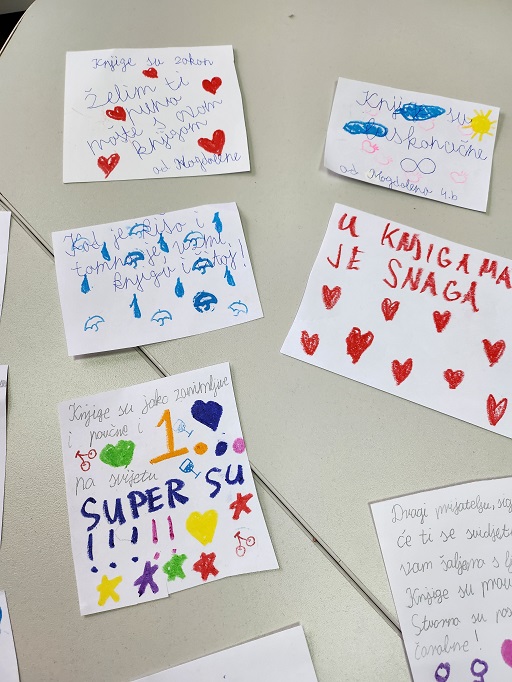 Knjige su zakon
želim ti
puno
mašte s ovom
knjigom
od Magdalene
Knjige su
beskonačne
od Magdalena 4.b
Kad je kiša i
tamno je, uzmi
knjigu i čitaj!
U KNJIGAMA
JE SNAGA
Knjige su jako zanimljive
i poučne i 1.
na svijetu
SUPER SU
!!!!!
Dragi prijatelju,
će ti se svidjeti
vam šaljemo s
Knjige su
Stvarno su
čarobne!